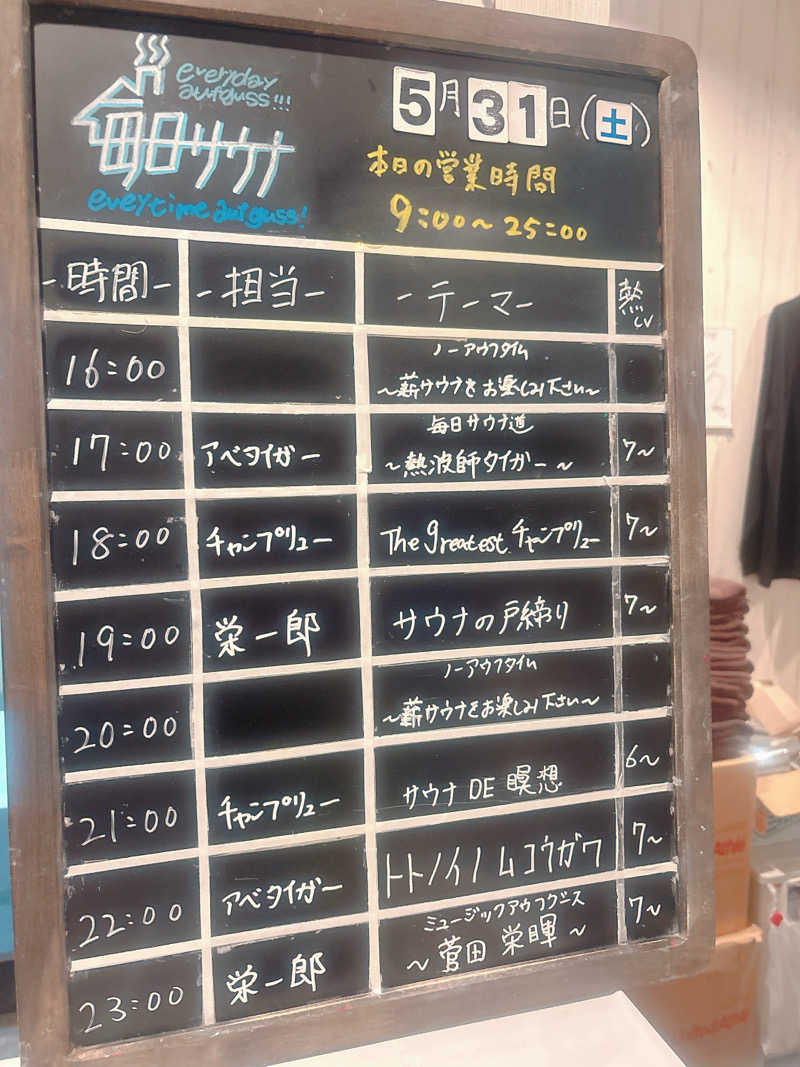 everyday
aufguss!!!
毎日サウナ
everytime aufguss!
5月31日(土)
本日の営業時間
9:00~25:00
-時間- -担当- -テーマ- 熱LV
16:00 ノーアウフタイム
~薪サウナをお楽しみ下さい~
17:00 アベタイガー 毎日サウナ道 7~
~熱波師タイガー~
18:00 チャンプリュー The greatest チャンプリュー 7~
19:00 栄一郎 サウナの戸締り 7~
20:00 ノーアウフタイム
~薪サウナをお楽しみ下さい~
21:00 チャンプリュー サウナ DE 瞑想 6~
22:00 アベタイガー トトノイノムコウガワ 7~
23:00 栄一郎 ミュージックアウフグース 7~
~菅田 栄暉~